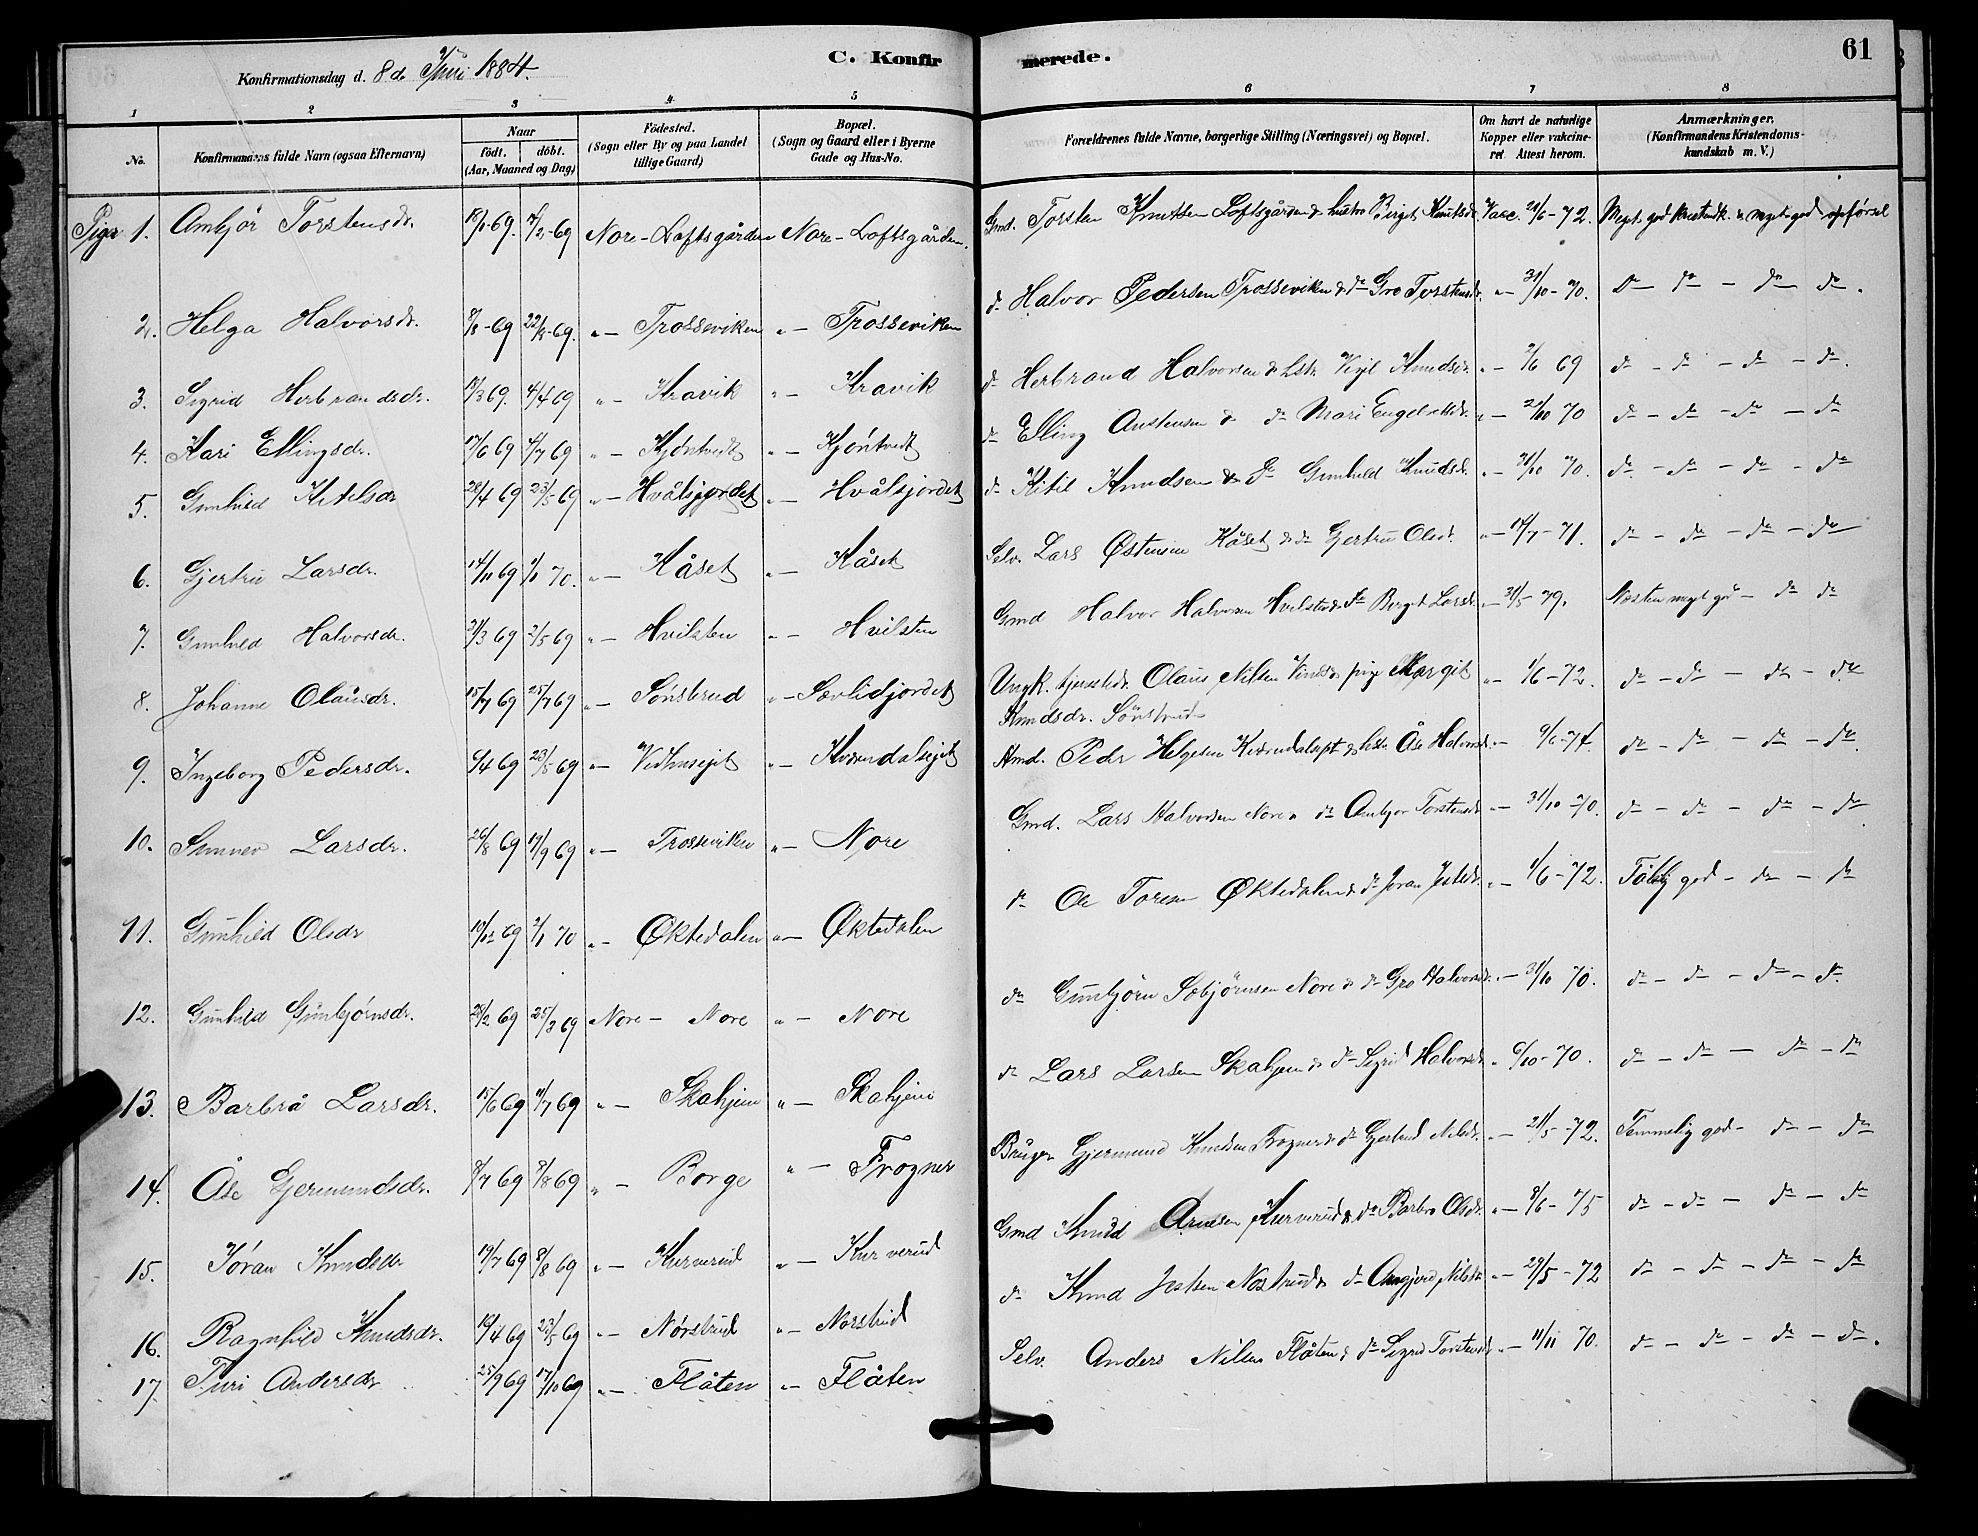 Konfirmationsdag d. 8de Juni 1884.
C. Konfirmerede.
61
1 2 3 4 5 6 7 8
No.
Konfirmandens fulde Navn (ogsaa Efternavn)
Naar
født. døbt.
(Aar, Maaned og Dag)
Fødested.
(Sogn eller By og paa Landet
tillige Gaard)
Bopæl.
(Sogn og Gaard eller i Byerne
Gade og Hus-No.
Forældrenes fulde Navne, borgerlige Stilling (Næringsvei) og Bopæl.
Om havt de naturlige
Kopper eller vakcine-
ret Attest herom.
Anmærkninger.
(Konfirmandens Kristendoms-
kundskab m. V.)
Piger 1. Ambjør Torstensdr. 18/1-69. 7/2-69 Nore-Loftsgården Nore-Loftsgården. Gmd. Torsten Knutsen Loftsgården & hustru Birgit Knutsdr. Vacc. 21/6-72. Meget god kristendk. & meget god opførsel
2. Helga Halvorsdr. 22/8-69. „ - Trosseviken „ - Trosseviken do Halvor Pedersen Trosseviken & do Gro Torstensdr. „ - 31/10-70. Do - do - do do.
3. Sigrid Herbrandsdr. 17/3 69. 4/4 69 „ - Kravik „ - Kravik do Herbrand Halvorsen & hstr. Knudsdr. „ - 2/6 69 do - do - do - do.
4. Kari Ellingsdr. 17/6 69 4/7 69 „ - Kjöntvedt „ - Kjöntvedt do Elling Austensen & do Mari Engebretsdr. „ - 21/10 70 do - do - do - do
5. Gunhild Kitelsdr 28/4 69 23/5 69 „ - Hvålsjordet „ - Hvålsjordet do Kitil Knudsen & Do Gunhild Knudsdr. „ - 31/10 70. do - do - do - do
6. Gjertru Larsdr. 14/11 69 1/1 70. „ - Kåset „ - Kåset Selv. Lars Østensen Kåset & do Gjertru Olsdr. „ - 17/7-71. do - do - do - do
7. Gunhild Halvorsdr. 31/3 69 2/5 69 „ - Hvilsten „ - Hvilsten Gmd Halvor Halvorsen Hvilsten & do Berget Larsdr. - 31/5-79. Næsten meget god - do do
8. Johanne Olausdr. 15/7 69 25/7 69 „ - Sönsterud „ - Sævlidjordet Ungk. tjenestedr. Olaus Nilsen & pige Margit „ - 1/6-72. do - do - do - do
Knudsdr. Sönstrud
9. Ingeborg Pedersdr. 6/4 69 23/5 69 „ - „ - Hmd. Peder Helgesen & hstr Åse Halvorsdr. - 9/6-74. do - do - do - do.
10. Sunnev Larsdr. 26/8 69 19/9 69 „ - Trosseviken „ - Nore Gmd. Lars Halvorsen Nore & do Ambjør Torstensdr. - 31/10-70. do - do - do - do
11. Gunhild Olsdr 10/12 69 2/1 70 „ - Øktedalen „ - Øktedalen do Ole Toresen Øktedalen & do Joran „ - 1/6-72. Tålelig god - do - do
12. Gunhild Gunbjørnsdr. 28/2 69 25/3 69 Nore - Nore „ - Nore do Gunbjörn Sæbjörnsen Nore & do Gro Halvorsdr. - 31/10 70. do - do - do - do.
13. Barbrå Larsdr. 15/6 69 11/7 69 „ - Skahjem „ - Skahjem do Lars Larsen Skahjem & do Sigrid Halvorsdr. „ 6/10-70. do - do - do - do
14. Åse Gjermundsdr. 9/7 69 8/8 69 „ - Borge „ - Frogner Bruger Gjermund Knudsen Frogner & do Gjertrud Nilsdr. - 21/5-72. Temmelig god - do - do
15. Jöran Knudsdr 19/7 69 8/8 69 „ - Kurverud „ - Kurverud Gmd Knud Arnesen Kurverud & do Barbro Olsdr. „ - 8/6-75 do - do - do - do
16. Ragnhild Knudsdr. 19/4 69 23/5 69 „ - Nörstrud „ - Norstrud do Knud Jostsen Nørstrud & do Nilsdr. „ - 29/5-72 do - do - do - do
17. Turi Andersdr 25/9 69 17/10 69 „ - Flåten „ - Flåten Selv. Anders Nilsen Flåten & do Sigrid Torstensdr. „ - 11/11 70. do - do - do - do.